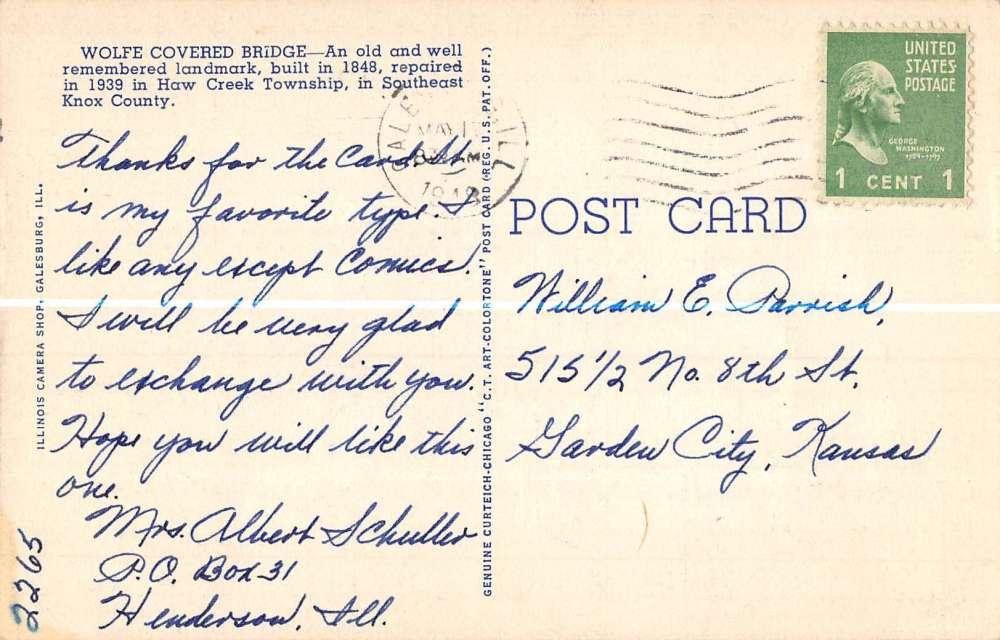 WOLFE COVERED BRIDGE—An old and well
remembered landmark, built in 1848, repaired
in 1939 in Haw Creek Township, in Southeast
Knox County.
Thanks for the card. It
is my favorite type. I
like any except Comics.
I will be very glad
to exchange with you.
Hope you will like this
one.
Mrs. Albert Schuller
P.O. Box 31
Henderson, Ill.
2265
ILLINOIS CAMERA SHOP, GALESBURG, ILL.
GENUINE CURTEICH-CHICAGO "C.T. ART-COLORTONE" POST CARD (REG. U.S. PAT. OFF.)
MAY
ILL
UNITED
STATES
POSTAGE
GEORGE
WASHINGTON
1789-1797
1 CENT 1
POST CARD
William E. Parrish,
515 1/2 No. 8th St.
Garden City, Kansas